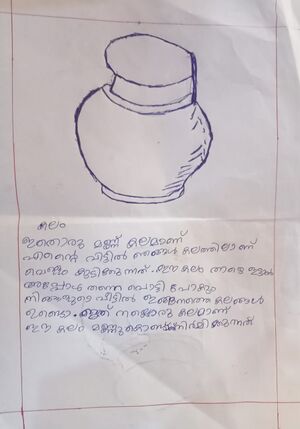 കലം
ഇതൊരു മണ്ണ് കലമാണ്
എന്റെ വീട്ടിൽ ഞങ്ങൾ കലത്തിലാണ്
വെള്ളം കുടിക്കുന്നത്. ഈ കലം താഴെ ഇട്ടാൽ
അപ്പോൾ തന്നെ പൊട്ടി പോകും
നിങ്ങളുടെ വീട്ടിൽ ഇങ്ങനത്തെ കലങ്ങൾ
ഉണ്ടൊ. ഇത് നല്ലൊരു കലമാണ്
ഈ കലം മണ്ണുകൊണ്ടാണ് നിർമ്മിക്കുന്നത്